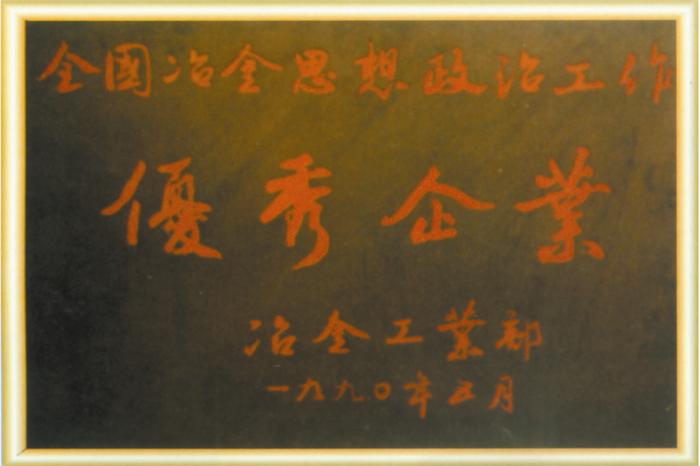 全國冶金思想政治工作
優秀企業
冶金工業部
一九九〇年五月